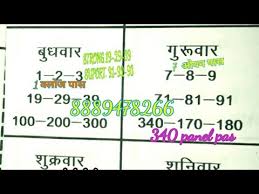 बुधवार
गुरूवार
STRONG 19-29-39
SUPORT 91-92-93
1-2-3
7-8-9
1 क्लोज पास
7 ओपन पास
19-29-39
71-81-91
8889478266
100-200-300
340-170-180
340 panel pas
शुक्रवार
शनिवार